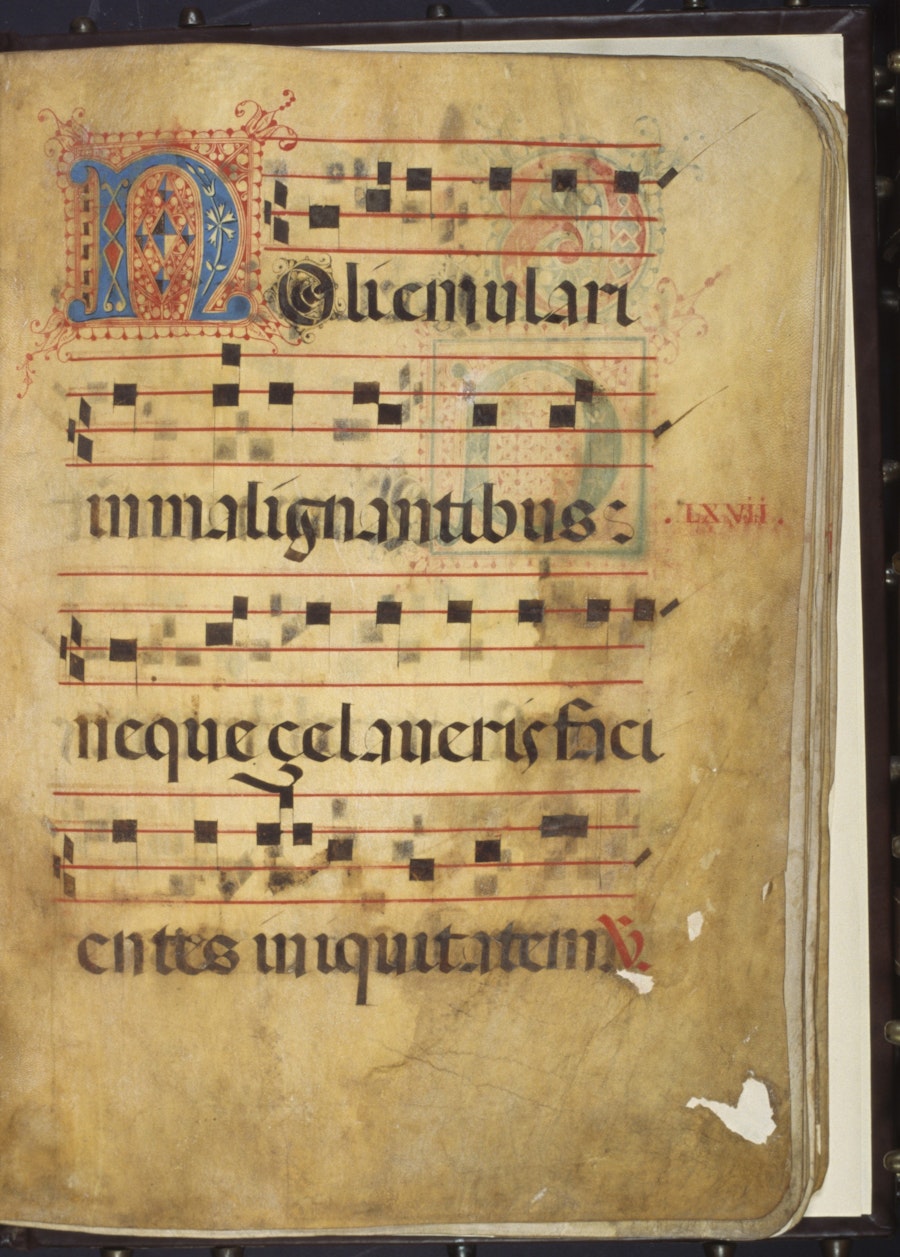 NOli emulari
in malignantibus:
.LXVii.
neque çelaueris faci
entes iniquitatem. V.